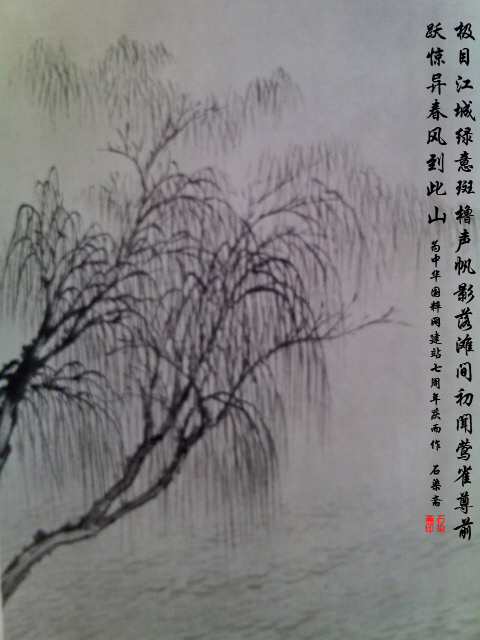 极目江城绿意斑橹声帆影落滩间初闻莺雀尊前
跃惊异春风到此山
为中华国粹网建站七周年庆而作 石染斋
石染斋印